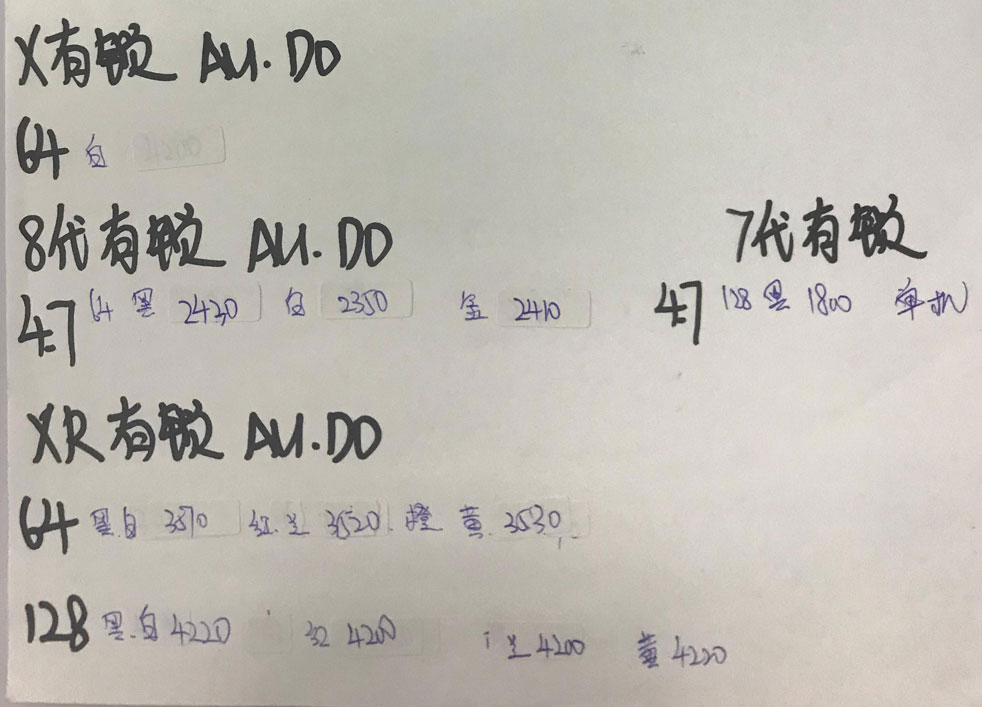 X有锁 AU.DO
64 白
8代有锁 AU.DO
4.7 64 黑 2430 白 2350 金 2410
7代有锁
4.7 128 黑 1800 单机
XR有锁 AU.DO
64 黑.白 3570 红.兰 3520 橙 黄.3530
128 黑.白 4220 红 4200 兰 4200 黄 4220